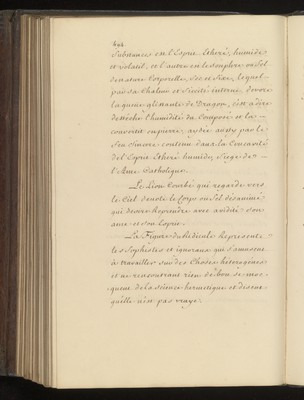 692
Substances est l'Esprit Etheré, humide
et volatil, et l'autre est le souphre ou Sel
de nature Corporelle, Sec et Fixe, lequel
par sa Chaleur et Siccité interne, devore
la queue glissante du Dragon, c'est à dire
desséche l'humidité du Composé et la
convertit en pierre, aydée aussy par le
feu contenu dans la Concavité
de l'Esprit Etheré humide, Siege de
l'Ame Catholique.
Le Lion Courbé qui regarde vers
le Ciel denote le Corps ou Sel desanimé
qui desire Reprendre avec avidité son
ame et son Esprit.
La Figure du Ridicule Represente
les Sophistes et ignorans qui s'amusent
à travailler sur des Choses heterogenes
et ne rencontrant rien de bon se moc-
quent de la science hermetique et disent
qu'elle n'est pas vraye.